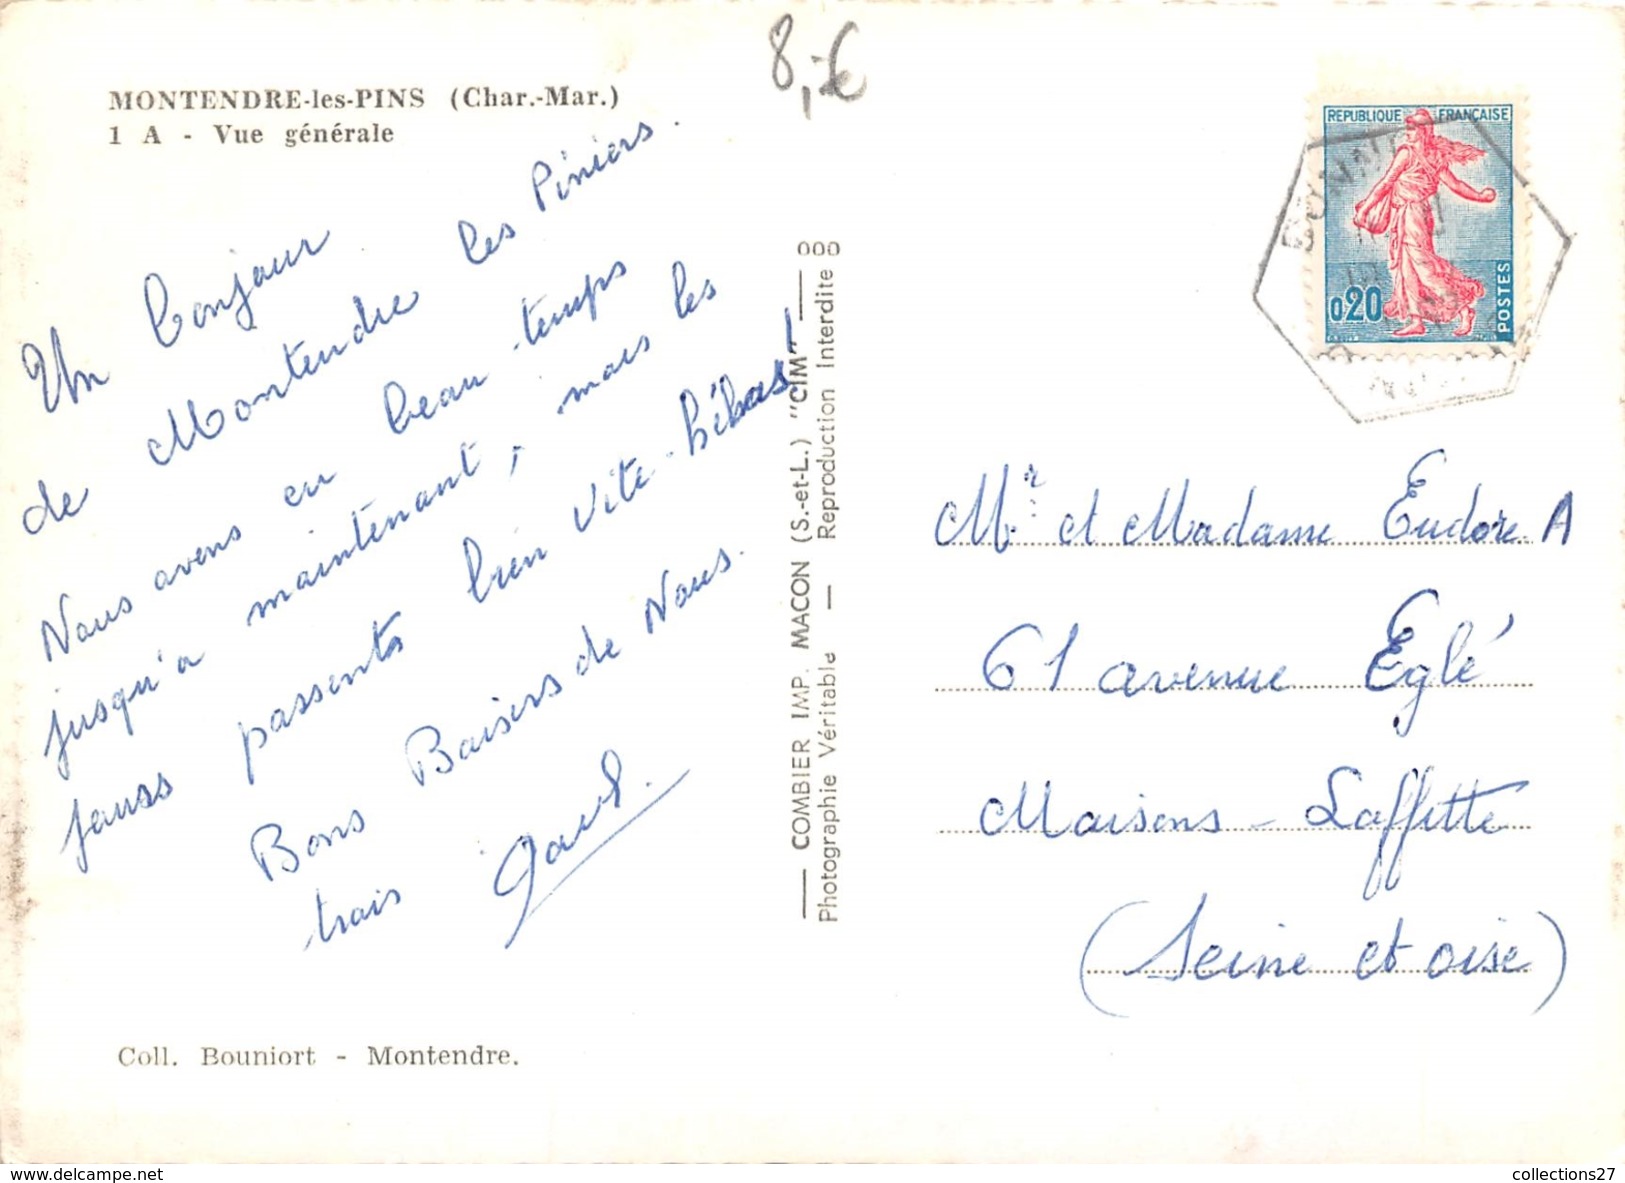 8,-€
MONTENDRE-les-PINS (Char.-Mar.)
1 A - Vue générale
Un bonjour
de Montendre les Piniers.
Nous avons eu beau temps
jusqu'a maintenant, mais les
jours passents bien vite hélas!
Bons Baisers de Nous
trois
Coll. Bouniort - Montendre.
COMBIER IMP. MACON (S.-et-L.) "CIM"
Photographie Véritable — Reproduction Interdite
000
REPUBLIQUE FRANÇAISE
0,20
POSTES
Mr et Madame Eudore A
61 avenue Eglé
Maisons-Laffitte
(Seine et oise)
collections27